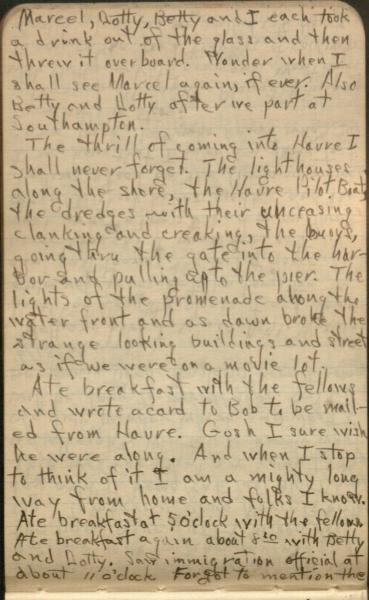 Marcel, Lotty, Betty and I each took
a drink out of the glass and then
threw it overboard. Wonder when I
shall see Marcel again, if ever. Also
Betty and Lotty after we part at
Southampton.
The thrill of coming into Havre I
shall never forget. The lighthouses
along the shore, the Havre Pilot Boat,
the dredges with their unceasing
clanking and creaking, the buoys,
going thru the gate into the har-
bor and pulling up to the pier. The
lights of the promenade along the
water front and as dawn broke the
strange looking buildings and street
as if we were on a movie lot.
Ate breakfast with the fellows
and wrote a card to Bob to be mail-
ed from Havre. Gosh I sure wish
he were along. And when I stop
to think of it I am a mighty long
way from home and folks I know.
Ate breakfast at 5 o'clock with the fellows.
Ate breakfast again about 8:00 with Betty
and Lotty. Saw immigration official at
about 11 o'clock Forgot to mention the